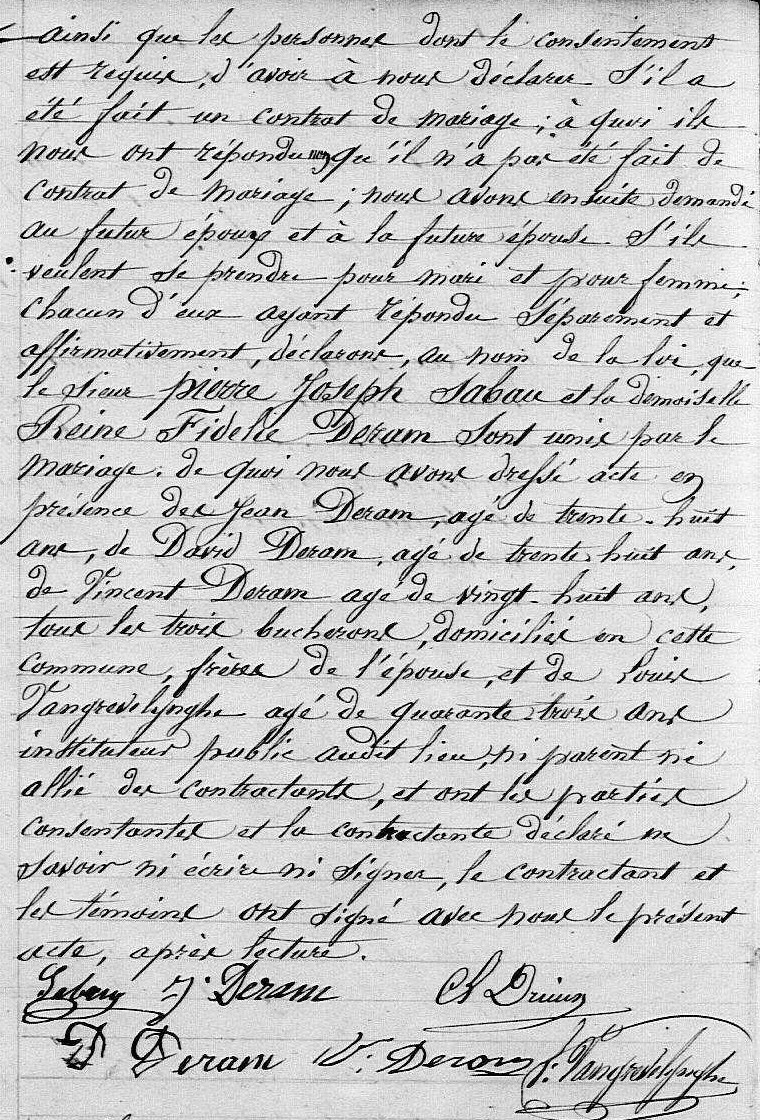 ainsi que les personnes dont le consentement
est requis, d'avoir à nous déclarer S'il a
été fait un contrat de mariage; à quoi ils
nous ont répondu qu'il n'a pas été fait de
contrat de mariage; nous avons ensuite demandé
au futur époux et à la future épouse S'ils
veulent se prendre pour mari et pour femme;
chacun d'eux ayant répondu Séparement et
affirmativement, déclarons, au nom de la loi, que
le Sieur pierre Joseph Sabau et la demoiselle
Reine Fidelie Deram Sont unis par le
mariage. de quoi nous avons dressé acte en
présence des Jean Deram, agé de trente-huit
ans, de David Deram, agé de trente huit ans,
de Vincent Deram agé de vingt-huit ans,
tous les trois bucherons, domiciliés en cette
commune, frères de l'épouse, et de Louis
Vangrevelynghe agé de quarante trois ans
instituteur public audit lieu, ni parent ni
allié des contractants, et ont les parties
consentantes et la contractante déclaré ne
savoir ni écrire ni Signer, le contractant et
les témoins ont signé avec nous le présent
acte, après lecture.
J. Deram
D Deram V. Deram L. Vangrevelynghe